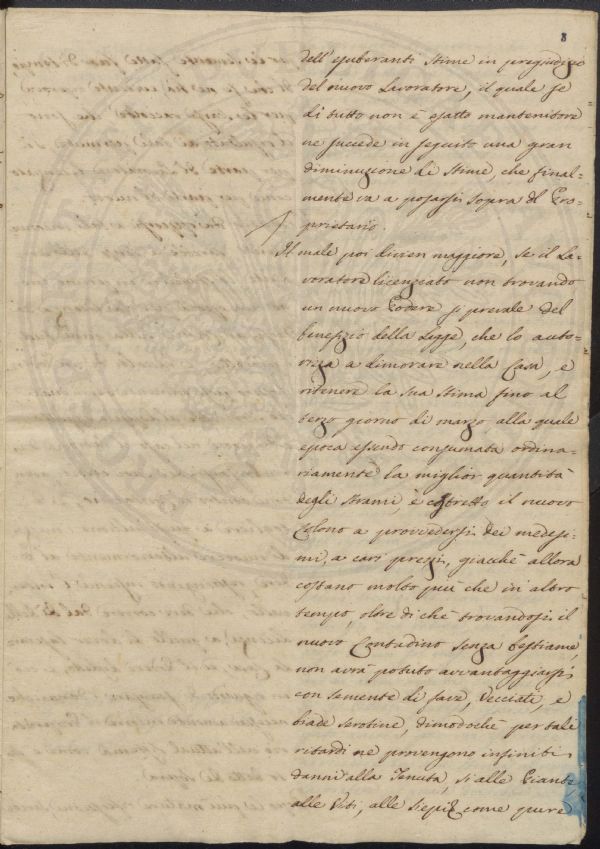 8
dell'esuberanti Stime in pregiudizio
del nuovo Lavoratore, il quale se
di tutto non è esatto mantenitore
ne succede in seguito una gran
diminuzione di Stime, che final-
mente va a posarsi sopra el Pro-
prietario.
Il male poi divien maggiore, se il La-
voratore licenziato non trovando
un nuovo Podere si prevale del
benefizio della Legge, che lo auto-
rizza a dimorare nella Casa, e
ritenere la sua Stima fino al
terzo giorno di marzo alla quale
epoca essendo consumata ordina-
riamente la miglior quantità
degli Strami, è costretto il nuovo
Colono a provvedersi dei medesi-
mi, a cari prezzi, giacchè allora
costano molto più che in altro
tempo, oltre di chè trovandosi il
nuovo Contadino senza bestiame,
non avrà potuto avvantaggiarsi
con semente di fave, Vecciati, e
biade serotine, dimodochè per tali
ritardi ne provengono infiniti
danni alla Tenuta, si alle Piante
alle Viti, alle Siepi come pure